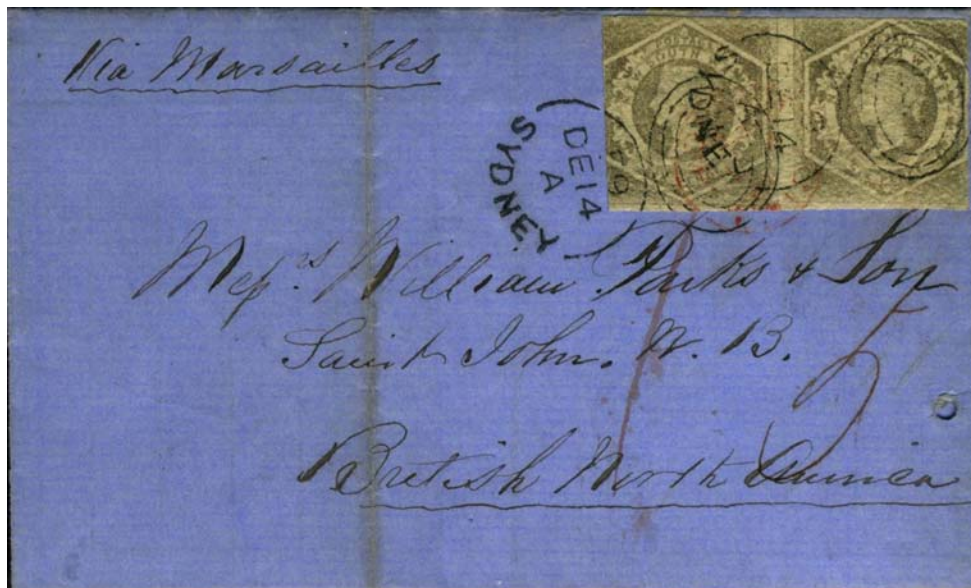 Via Marsailles
SYDNEY
DE 14
A
SYDNEY
DE 14
A
POSTAGE
SOUTH
WA
Messrs. William Parks & Son
Saint John. N. B.
British North America